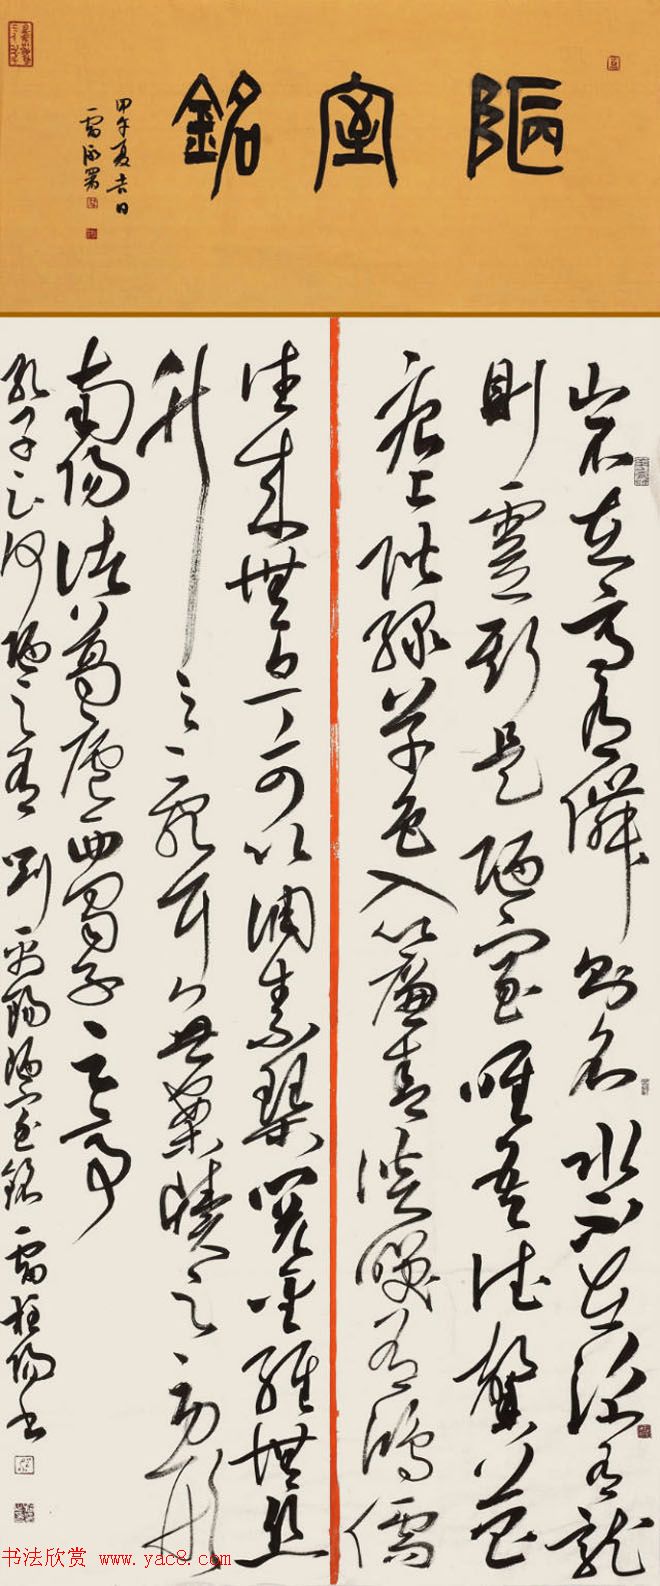 陋室銘
甲午夏吉日
雷署
山不在高有僊則名水不在深有龍
則靈斯是陋室唯吾德馨苔
痕上階綠草色入簾青談笑有鴻儒
往來無白丁可以調素琴閱金經無絲
竹之亂耳無案牘之勞形
南陽諸葛廬西蜀子云亭
孔子云何陋之有 劉禹錫陋室銘 雷書
书法欣赏 www.yac8.com